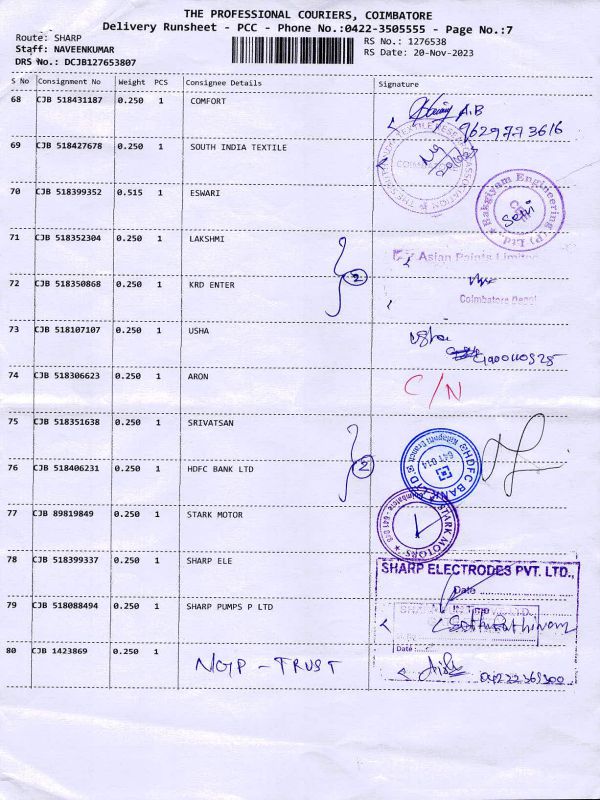 THE PROFESSIONAL COURIERS, COIMBATORE
Delivery Runsheet - PCC - Phone No.:0422-3505555 - Page No.:7
Route: SHARP
Staff: NAVEENKUMAR
DRS No.: DCJB127653807
RS No.: 1276538
RS Date: 20-Nov-2023
S No Consignment No Weight PCS Consignee Details Signature
68 CJB 518431187 0.250 1 COMFORT
A.B
9629773616
69 CJB 518427678 0.250 1 SOUTH INDIA TEXTILE
70 CJB 518399352 0.515 1 ESWARI
Engineering (P) Ltd.
Selvi
71 CJB 518352304 0.250 1 LAKSHMI
2
Asian Paints Limited
72 CJB 518350868 0.250 1 KRD ENTER
Coimbatore Depot
73 CJB 518107107 0.250 1 USHA
74 CJB 518306623 0.250 1 ARON
C/N
75 CJB 518351638 0.250 1 SRIVATSAN
2
76 CJB 518406231 0.250 1 HDFC BANK LTD
HDFC BANK LTD
77 CJB 89819849 0.250 1 STARK MOTOR
STARK MOTORS
78 CJB 518399337 0.250 1 SHARP ELE
SHARP ELECTRODES PVT. LTD.,
Date
79 CJB 518088494 0.250 1 SHARP PUMPS P LTD
In Time
80 CJB 1423869 0.250 1 NGP - TRUST
Date :